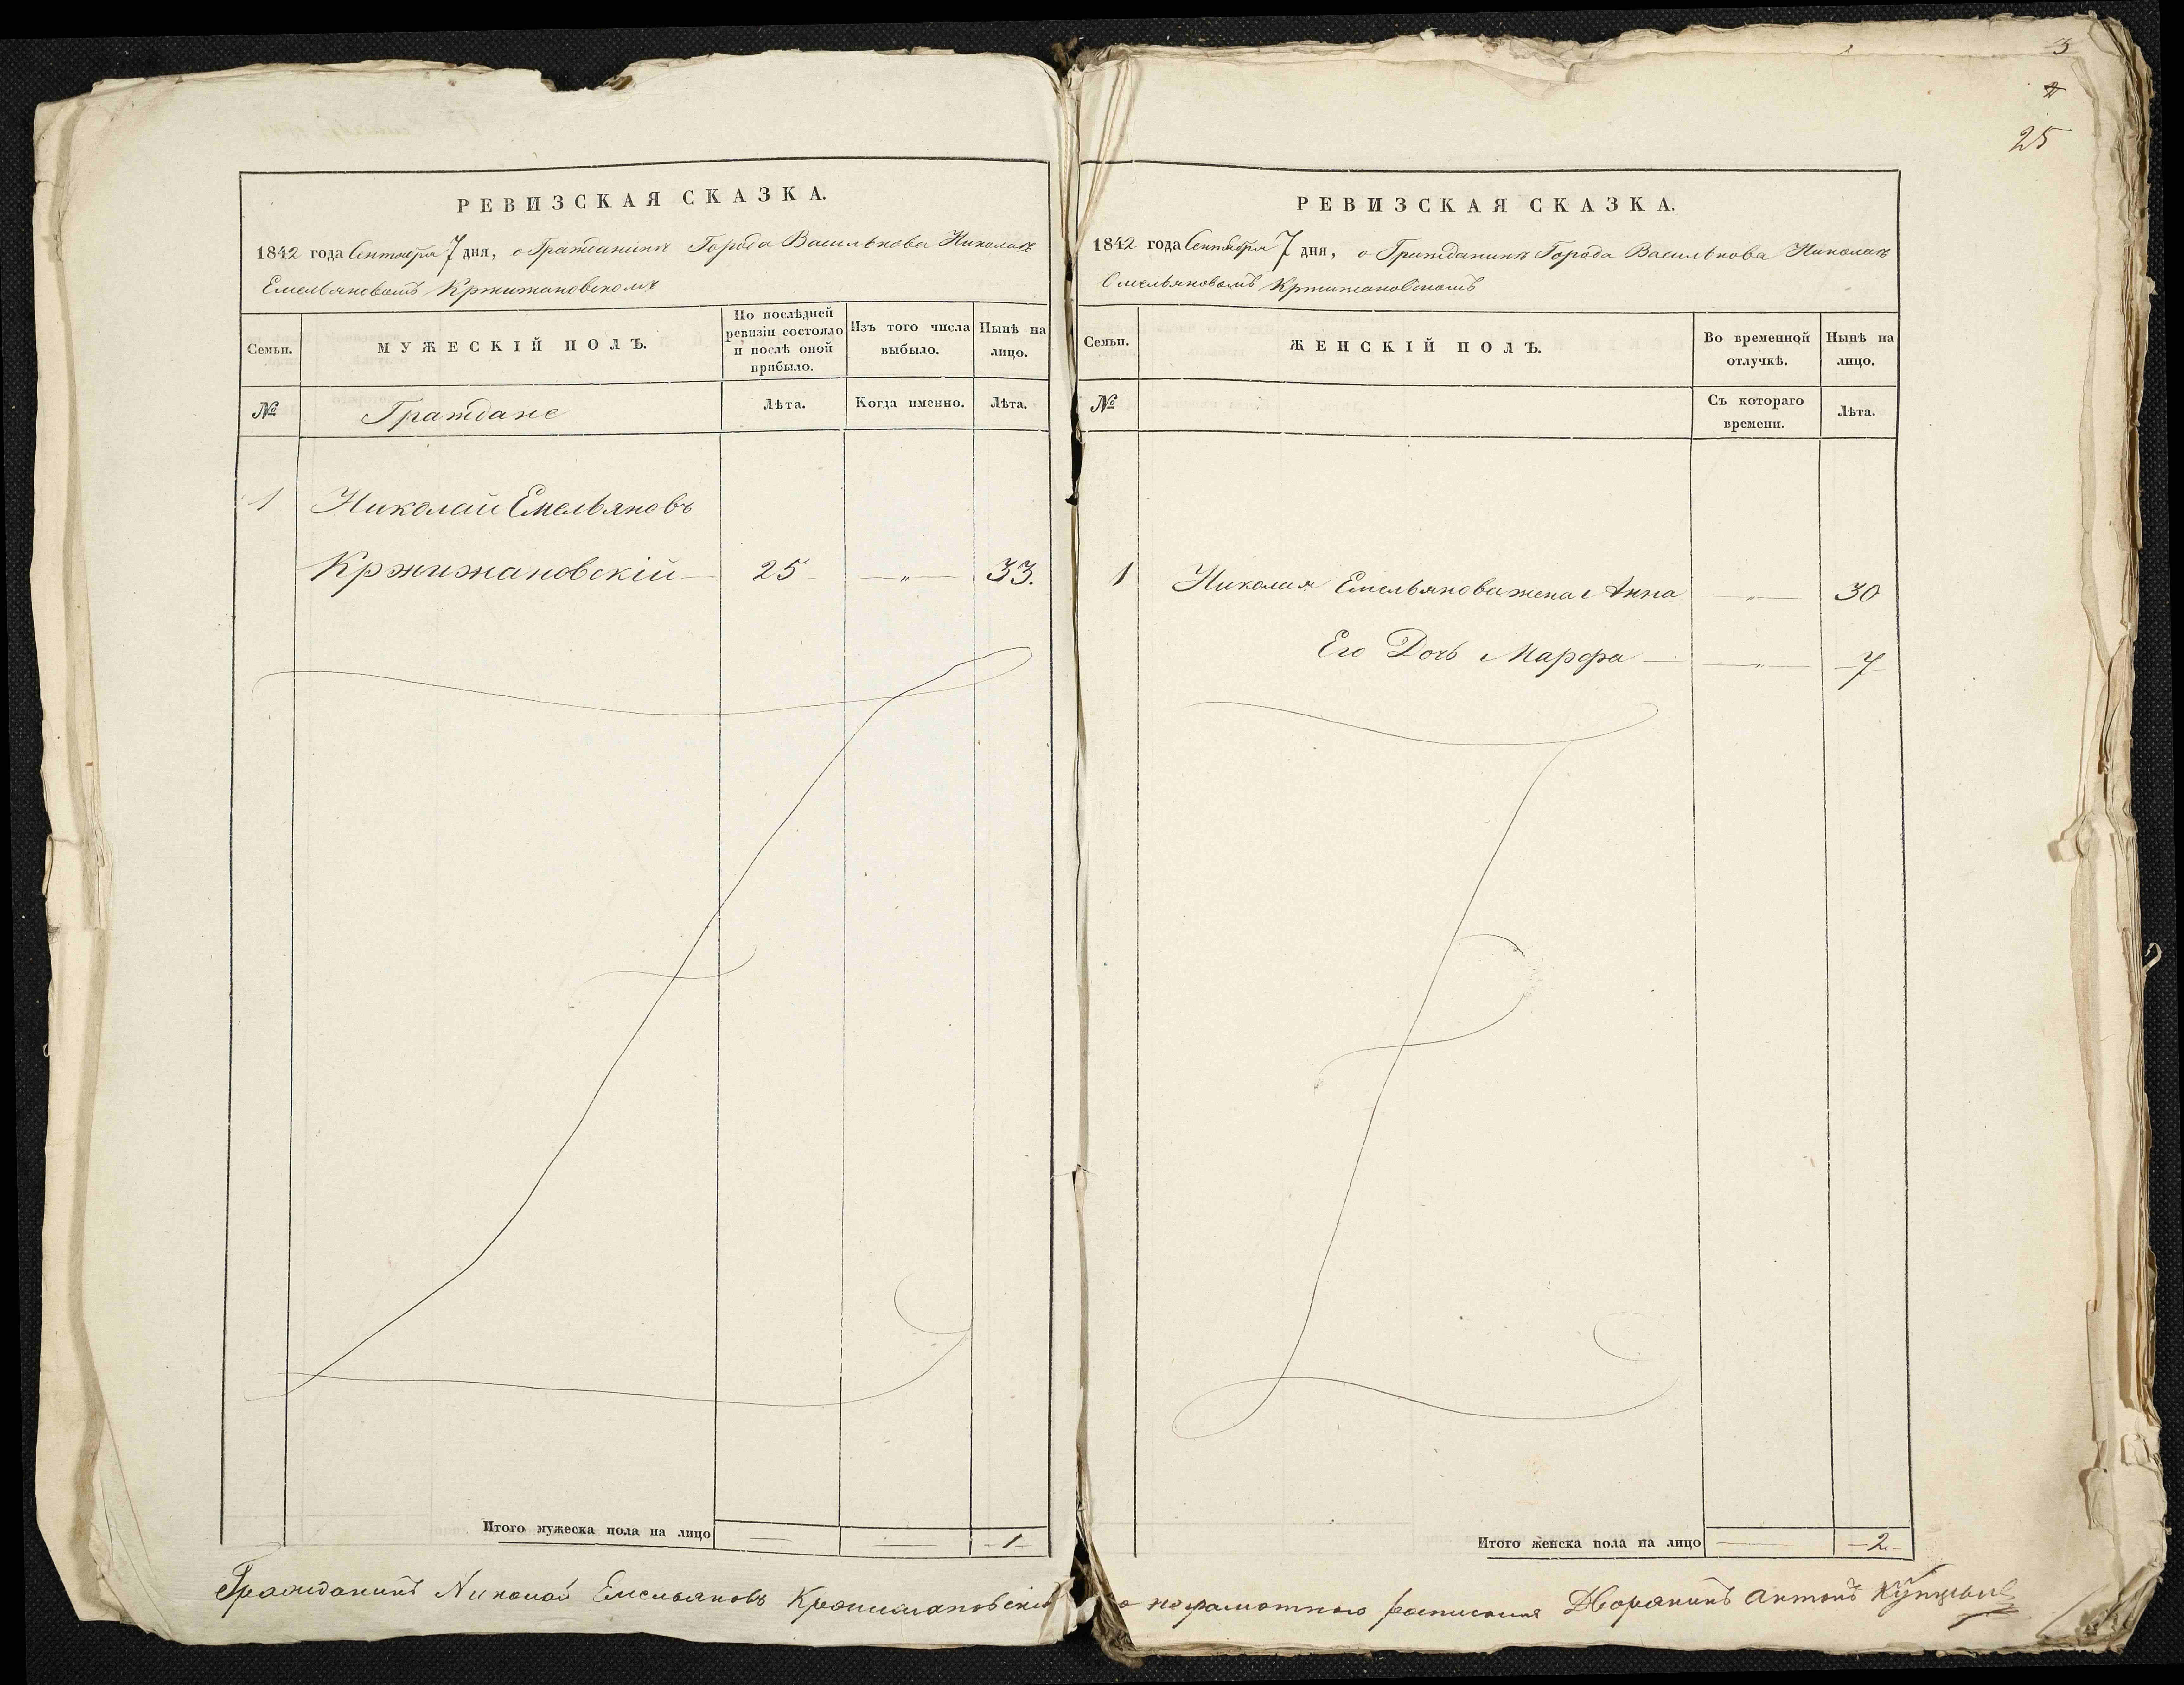 РЕВИЗСКАЯ СКАЗКА.
1842 года Сентября 7 дня, о Гражданинѣ Города Василькова Николаѣ
Емельяновомъ Кржижановскомъ
Семьи.
МУЖЕСКІЙ ПОЛЪ.
По послѣдней ревизіи состояло и послѣ оной прибыло.
Изъ того числа выбыло.
Нынѣ на лицо.
№
Граждане
Лѣта.
Когда именно.
Лѣта.
1 Николай Емельяновъ
Кржижановскій 25 — „ — 33.
Итого мужеска пола на лицо — — 1
Гражданинъ Николай Емельяновъ Кржижановскій
3
25
РЕВИЗСКАЯ СКАЗКА.
1842 года Сентября 7 дня, о Гражданинѣ Города Василькова Николаѣ
Емельяновомъ Кржижановскомъ
Семьи.
ЖЕНСКІЙ ПОЛЪ.
Во временной отлучкѣ.
Нынѣ на лицо.
№
Съ котораго времени.
Лѣта.
1 Николая Емельянова жена Анна — „ — 30
Его Дочь Марфа — „ — 7
Итого женска пола на лицо — 2
Дворянинъ Антонъ